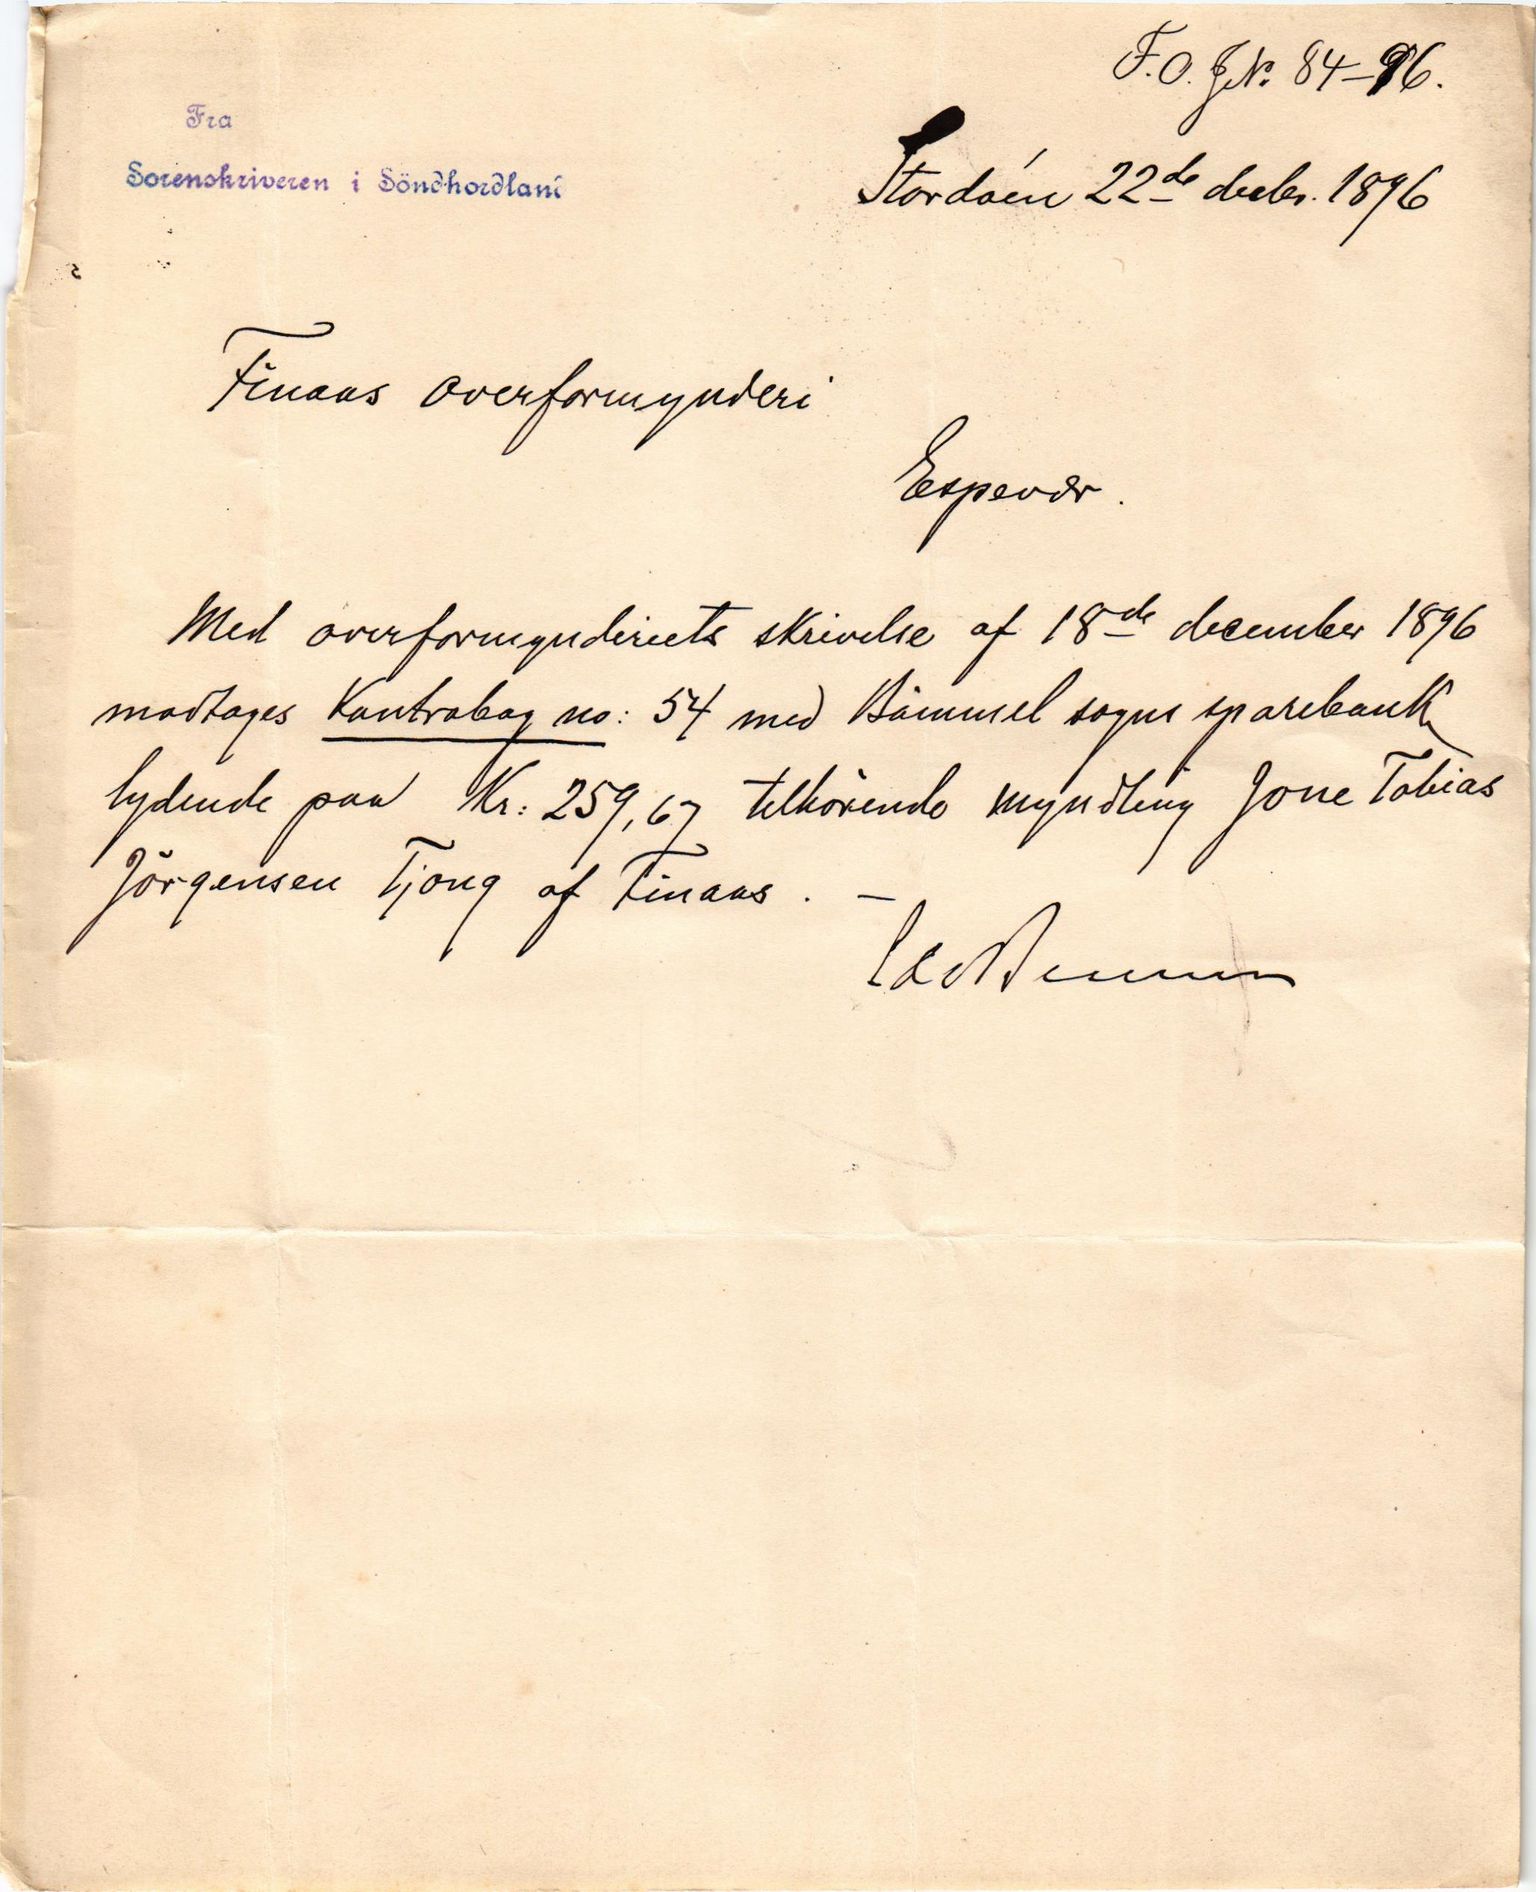 F.O. J.N. 84-96.
Fra
Sorenskriveren i Söndhordland
Stordöen 22de decbr. 1896
Finaas overformynderi
Espevær.
Med overformynderiets skrivelse af 18de december 1896
modtages Kontrabog no: 54 med Bömmel sogns sparebank
lydende paa Kr: 259,67 tilhörende myndling Jone Tobias
Jörgensen Tjong af Finaas. —